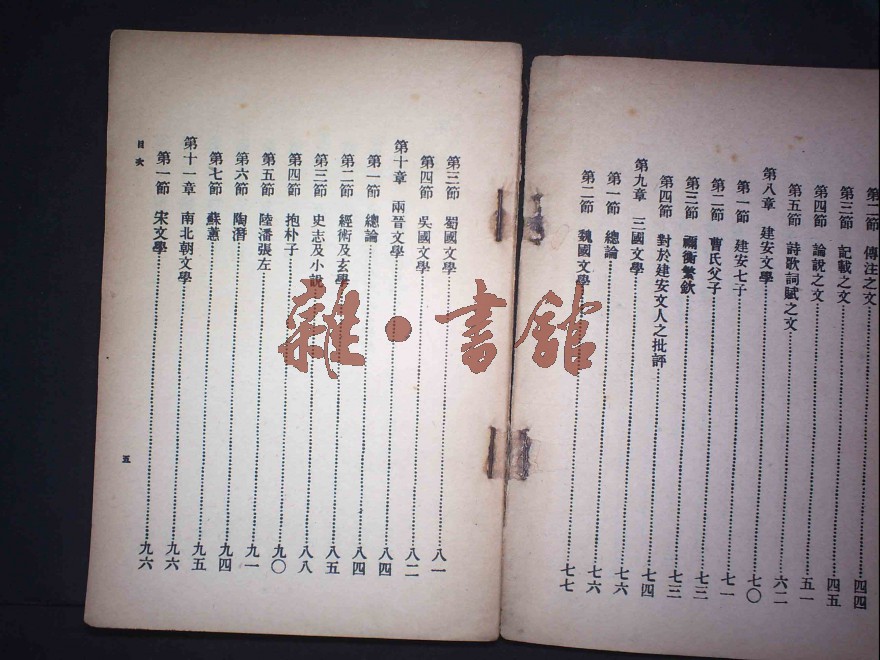 第二節　傳注之文　四四
第三節　記載之文　四五
第四節　論說之文　五一
第五節　詩歌詞賦之文　六二
第八章　建安文學　七〇
第一節　建安七子　七〇
第二節　曹氏父子　七一
第三節　禰衡繁欽　七三
第四節　對於建安文人之批評　七三
第九章　三國文學　七四
第一節　總論　七六
第二節　魏國文學　七七
第三節　蜀國文學　八一
第四節　吳國文學　八二
第十章　兩晉文學　八四
第一節　總論　八四
第二節　經術及玄學　八五
第三節　史志及小說　八八
第四節　抱朴子　九〇
第五節　陸潘張左　九一
第六節　陶潛　九四
第七節　蘇蕙　九五
第十一章　南北朝文學　九六
第一節　宋文學　九六
目次
五
雜·書館